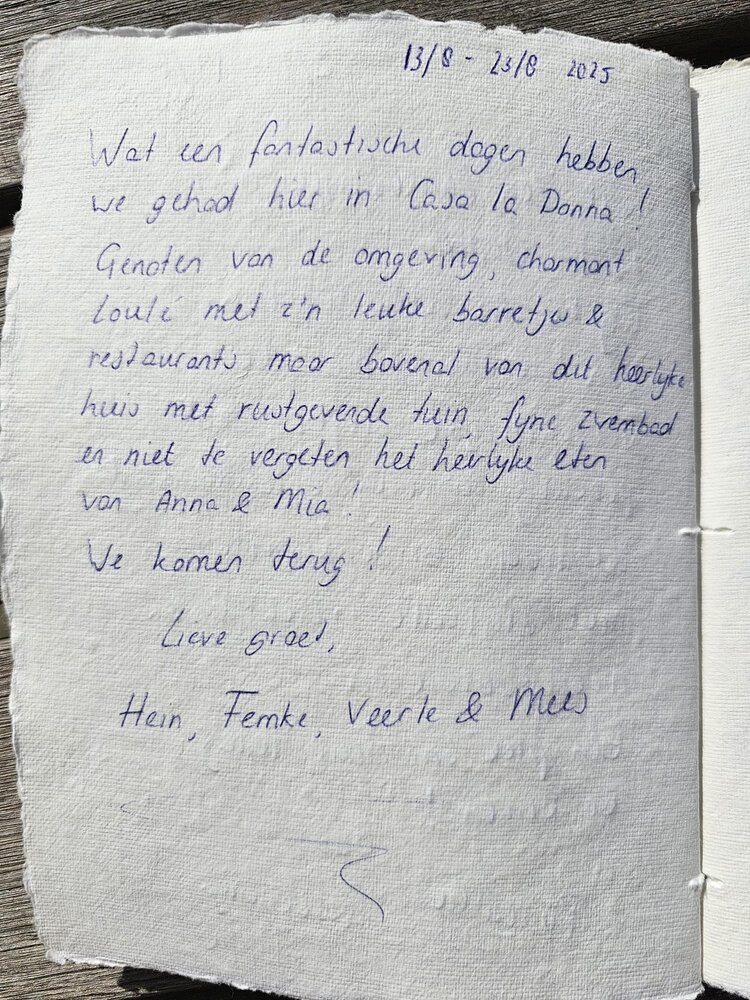 13/8 - 23/8 2025
Wat een fantastische dagen hebben
we gehad hier in Casa la Donna!
Genoten van de omgeving, charmant
Loulé met z'n leuke barretjes &
restaurants, maar bovenal van dit heerlijke
huis met rustgevende tuin, fijne zwembad
en niet te vergeten het heerlijke eten
van Anna & Mia!
We komen terug!
Lieve groet,
Hein, Femke, Veerle & Mees